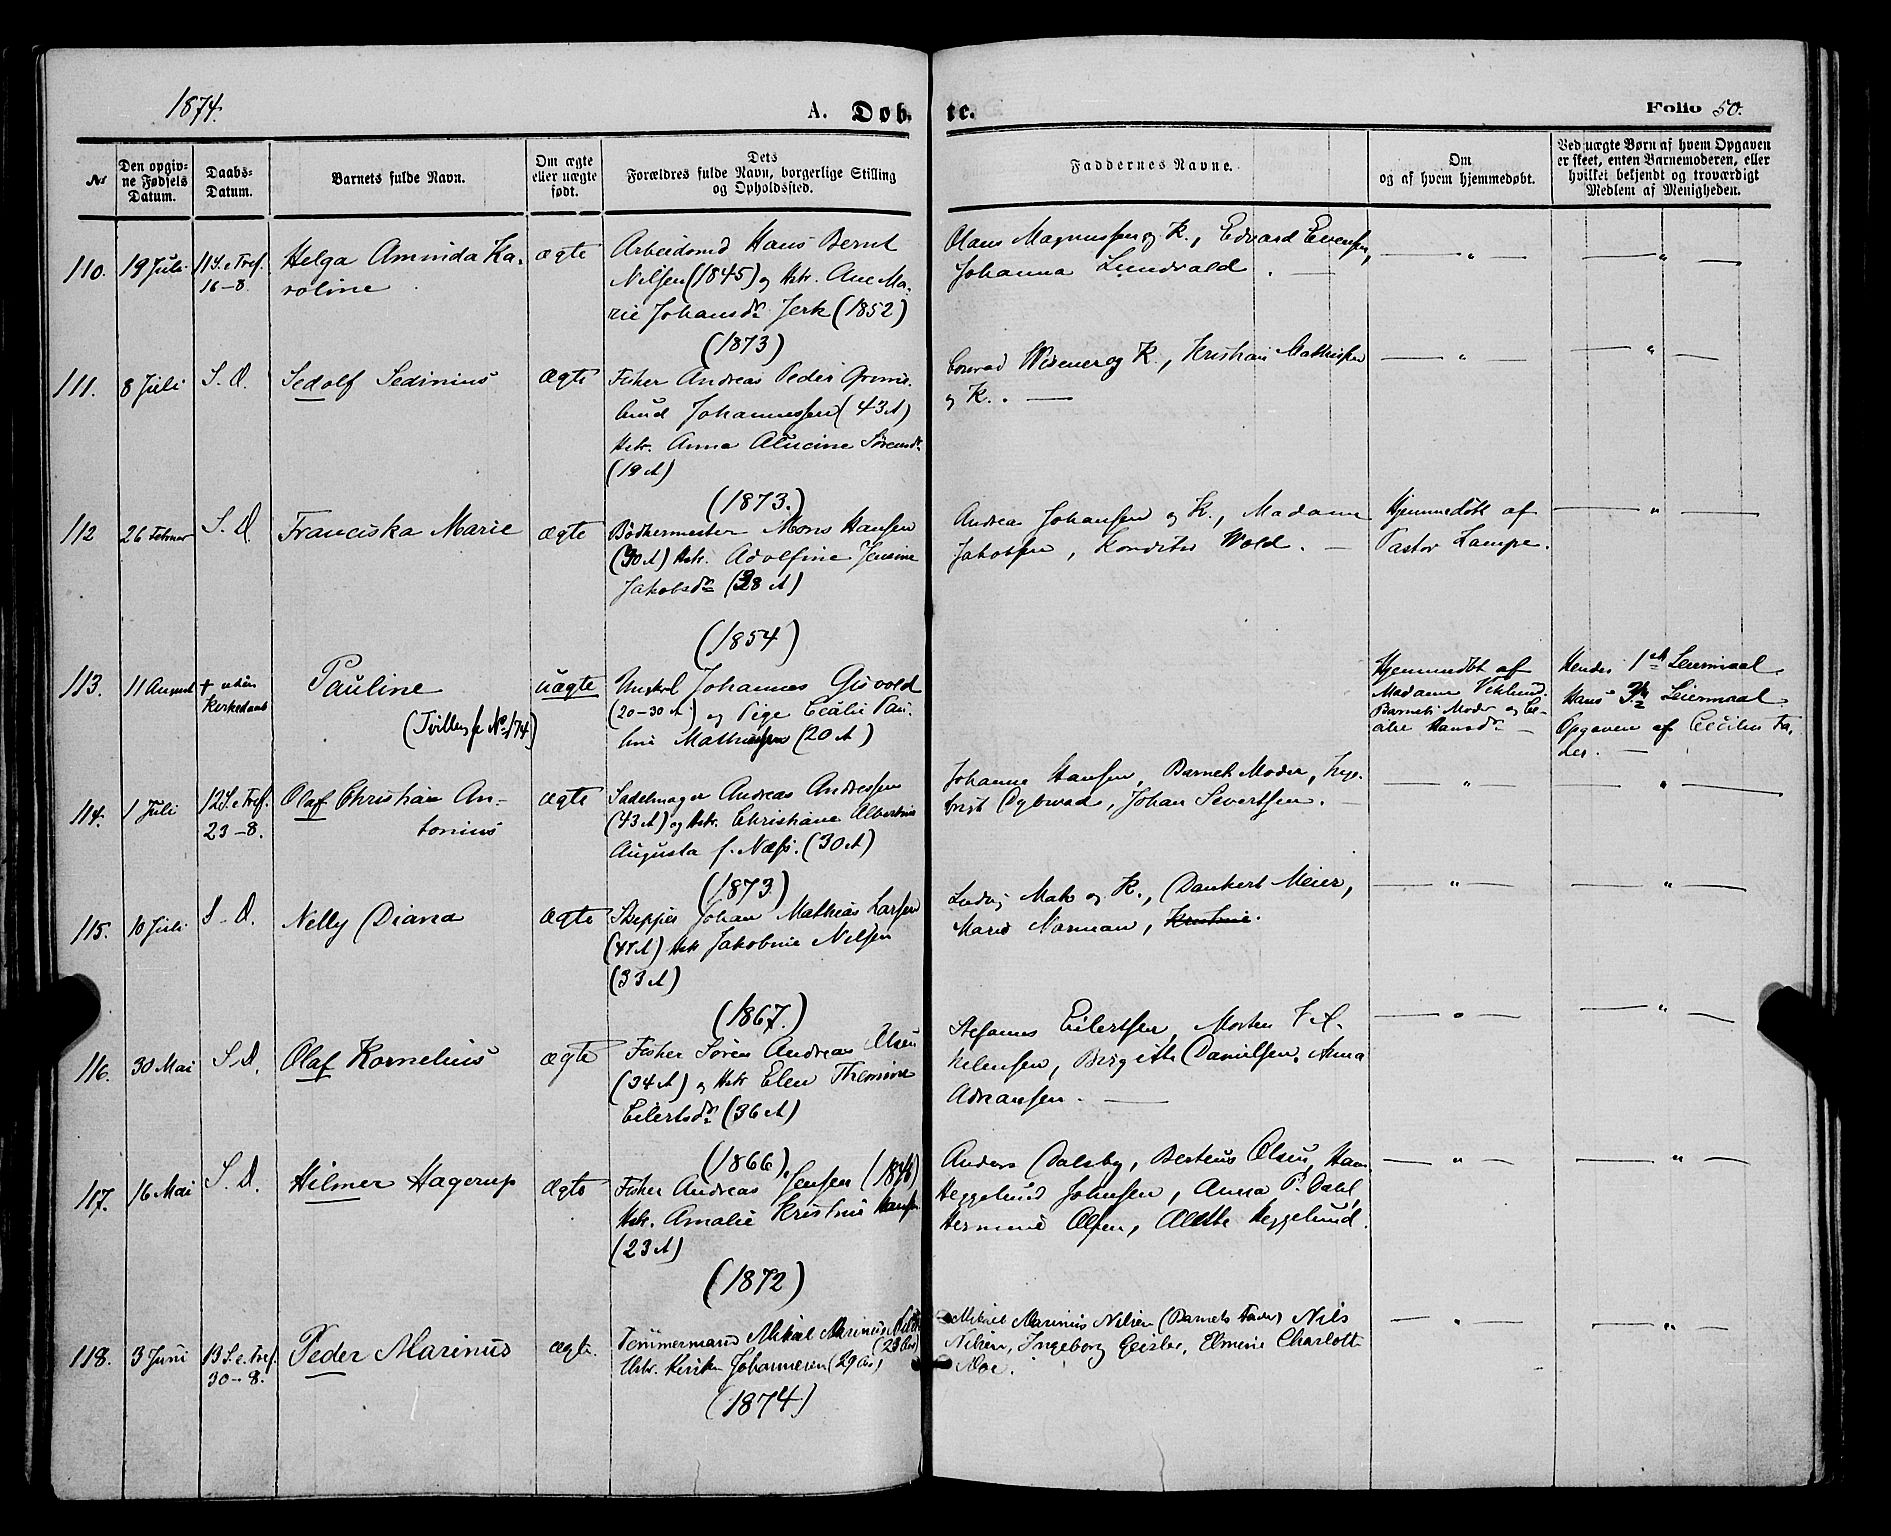 1874.
A. Døb- te.
Folio 50.
Nr
Den opgiv-
ne Fødsels
Datum.
Daabs-
Datum.
Barnets fulde Navn.
Om ægte
eller uægte
født.
Dets
Forældres fulde Navn, borgerlige Stilling
og Opholdssted.
Faddernes Navne.
Om
og af hvem hjemmedøbt.
Ved uægte Børn af hvem Opgaven
er skeet, enten Barnemoderen, eller
hvilket bekjendt og troværdigt
Medlem af Menigheden.
110. 19 Juli 11 S. e. Tref.
16-8.
Helga Aminda Ka-
roline
ægte
Arbeidsmd Hans Bernt
Nilsen (1845) og Hstr. Ane Ma-
rie Johansdr. Jerk (1852)
(1873)
Olaus Magnussen og K., Edvard Evensen,
Johanna Lundvald. —
— " —
— " —
111. 8 Juli S. D. Sedolf Sedinius
ægte
Fisker Andreas Peder
Johannessen (43 A)
Hstr. Anna Sørensdr.
(19 A)
(1873.)
Conrad Widener og K., Kristian Mathisen
og K. . —
— " —
— " —
112 26 Februar S. D. Franciska Marie
ægte
Bødkermester Mons Hansen
(30 A) Hstr. Adolfine Jensine
Jakobsdr. (38 A)
(1854)
Andreas Johansen og K., Madame
Jakobsen, Konditor Wold. —
Hjemmedøbt af
Pastor Lampe.
— " —
113. 11 August + uden
Kirkedaab
Pauline
(Tvilling fr No. 174)
uægte
Ungkl Johannes Gisvold
(20-30 A) og Pige Cecilie Pau-
line Mathiesen (20 A)
Hjemmedøbt af
Madame Viklund.
Barnets Moder og Ce-
cilie Hansdr. —
Hendes 1ste Leiermaal
Hans Leiermaal
Opgaven af Cecilies Fa-
der. —
114. 1 Juli 12 S. e. Tref.
23-8.
Olaf Christian An-
tonius
ægte
Sadelmager Andreas Andressen
(43 A) og Hstr. Christiane Albertine
Augusta f. Næss. (30 A)
(1873)
Johanne Hansen, Barnets Moder, Inge-
brigt , Johan Severtsen. —
— " —
— " —
115. 10 Juli S. D. Nelly Diana
ægte
Skipper Johan Mathias Larsen
(47 A) Hstr Jakobine Nilsen
(33 A)
(1867.)
Ludvig Mak og K., Dankert Meier,
Marie Norman, Kristine.
— " —
— " —
116. 30 Mai S. D. Olaf Kornelius
ægte
Fisker Søren Andreas Olsen
(34 A) og Hstr Elen Themine
Eilertsdr. (36 A)
(1866)
Stefanus Eilertsen, Morten
, Birgitte Danielsen, Anna
Adriansen. —
— " —
— " —
117. 16 Mai S. D. Hilmer Hagerup
ægte
Fisker Andreas Jensen
Hstr. Amalie Kristine Hansen
(23 A)
(1872)
Anders Dalsby, Berteus Olsen, Hans
Heggelund Johnsen, Anna P. Dahl,
Hermine Olsen, Alette Heggelund.
— " —
— " —
118. 3 Juni 13 S. e. Tref.
30-8.
Peder Marinus
ægte.
Tømmermand Mikal Marinus Nilsen
Hstr. Johannesen (29 Aar)
(1874)
Mikael Marinus Nilsen (Barnets Fader) Nils
Nilsen, Ingeborg Geisler, Elmine Charlotte
Moe.
— " —
— " —